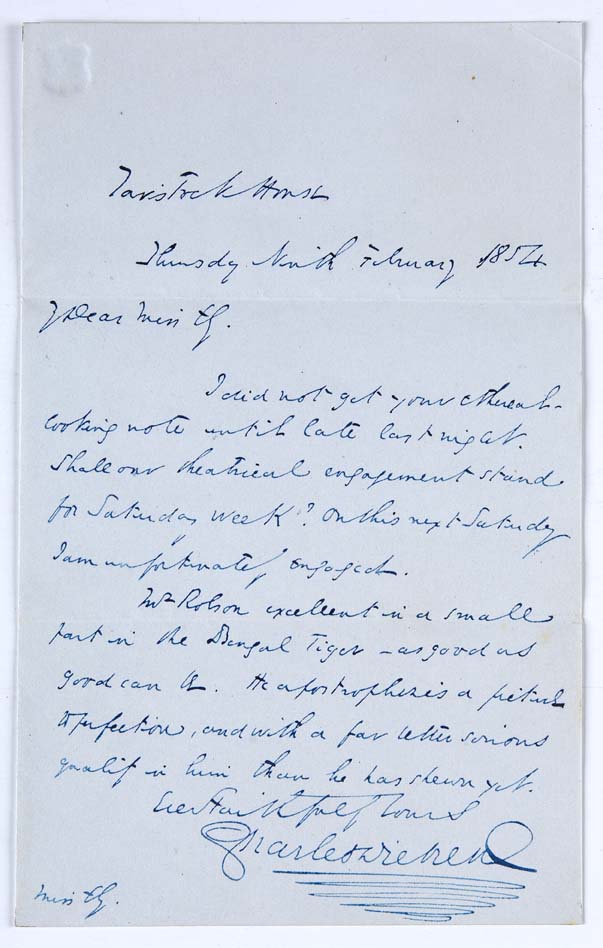 Tavistock House
Thursday Ninth February 1854
My Dear Miss Ely.
I did not get your ethereal-
looking note until late last night.
Shall our theatrical engagement stand
for Saturday week? On this next Saturday
I am unfortunately engaged.
Mr Robson excellent in a small
part in the Bengal Tiger – as good as
good can be. He apostrophizes a picture
to perfection, and with a far better serious
quality in him than he has shewn yet.
Ever Faithfully Yours
Charles Dickens
Miss Ely.